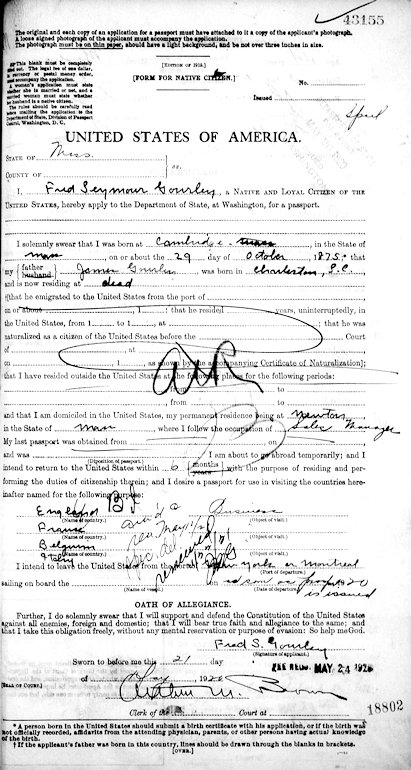 43155
The original and each copy of an application for a passport must have attached to it a copy of the applicant's photograph.
A loose signed photograph of the applicant must accompany the application.
The photograph must be on thin paper, should have a light background, and be not over three inches in size.
This blank must be completely
filled out. The legal fee of one dollar,
in currency or postal money order,
must accompany the application.
A woman's application must state
whether she is married or not, and a
married woman must state whether
her husband is a native citizen.
The rules should be carefully read
before mailing the application to the
Department of State, Division of Passport
Control, Washington, D. C.
[EDITION OF 1919.]
[FORM FOR NATIVE CITIZEN.]
No.
Issued
UNITED STATES OF AMERICA.
STATE OF Mass.
COUNTY OF
ss.
I, Fred Seymour Gourley, A NATIVE AND LOYAL CITIZEN OF THE
UNITED STATES, hereby apply to the Department of State, at Washington, for a passport.
I solemnly swear that I was born at Cambridge, in the State of
Mass, on or about the 29 day of October, 1875; that
my {father husband} James Gourley, was born in Charleston, S.C.
and is now residing at dead
that he emigrated to the United States from the port of
on or about 1; that he resided years, uninterruptedly, in
the United States, from 1 to 1, at ; that he was
naturalized as a citizen of the United States before the Court
of , at
on , 1 , as shown by the accompanying Certificate of Naturalization];
that I have resided outside the United States at the following places for the following periods:
from to
from to
and that I am domiciled in the United States, my permanent residence being at Newton
in the State of Mass, where I follow the occupation of Sales Manager
My last passport was obtained from on
and was . I am about to go abroad temporarily; and I
(Disposition of passport.)
intend to return to the United States within 6 {months years} with the purpose of residing and per-
forming the duties of citizenship therein; and I desire a passport for use in visiting the countries herein-
after named for the following purpose:
England Business
(Name of country.) (Object of visit.)
France
(Name of country.) (Object of visit.)
Belgium
(Name of country.) (Object of visit.)
Italy
I intend to leave the United States from the port of New York or Montreal
(Port of departure.)
sailing on board the on as soon as passport 1920
(Name of vessel.) (Date of departure.)
is issued
OATH OF ALLEGIANCE.
Further, I do solemnly swear that I will support and defend the Constitution of the United States
against all enemies, foreign and domestic; that I will bear true faith and allegiance to the same; and
that I take this obligation freely, without any mental reservation or purpose of evasion: So help me God.
Fred S. Gourley
(Signature of applicant.)
Sworn to before me this 21 day
of May, 1920
FEE RECD. MAY 24 1920
[SEAL OF COURT.]
Clerk of the Court at
18802
*A person born in the United States should submit a birth certificate with his application, or if the birth was
not officially recorded, affidavits from the attending physician, parents, or other persons having actual knowledge
of the birth.
† If the applicant's father was born in this country, lines should be drawn through the blanks in brackets.
[OVER.]